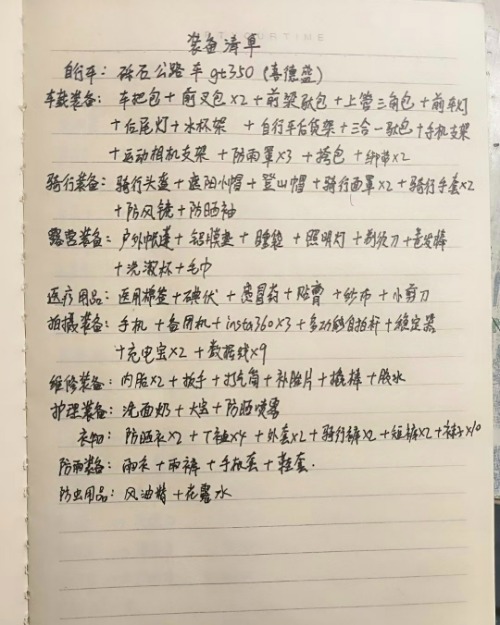 装备清单
自行车：砾石公路车gt350（喜德盛）
车载装备：车把包+前叉包x2+前梁驮包+上管三角包+前车灯
+后尾灯+水杯架+自行车后货架+三合一驮包+手机支架
+运动相机支架+防雨罩x3+挎包+绑带x2
骑行装备：骑行头盔+遮阳小帽+登山帽+骑行面罩x2+骑行手套x2
+防风镜+防晒袖
露营装备：户外帐篷+铝膜垫+睡袋+照明灯+剃须刀+卷发棒
+洗漱杯+毛巾
医疗用品：医用棉签+碘伏+感冒药+贴膏+纱布+小剪刀
拍摄装备：手机+备用机+insta360x3+多功能自拍杆+稳定器
+充电宝x2+数据线x9
维修装备：内胎x2+扳手+打气筒+补胎片+撬棒+胶水
护理装备：洗面奶+大宝+防晒喷雾
衣物：防晒衣x2+T恤x4+外套x2+骑行裤x2+短裤x2+袜子x10
防雨装备：雨衣+雨裤+手机套+鞋套.
防虫用品：风油精+花露水